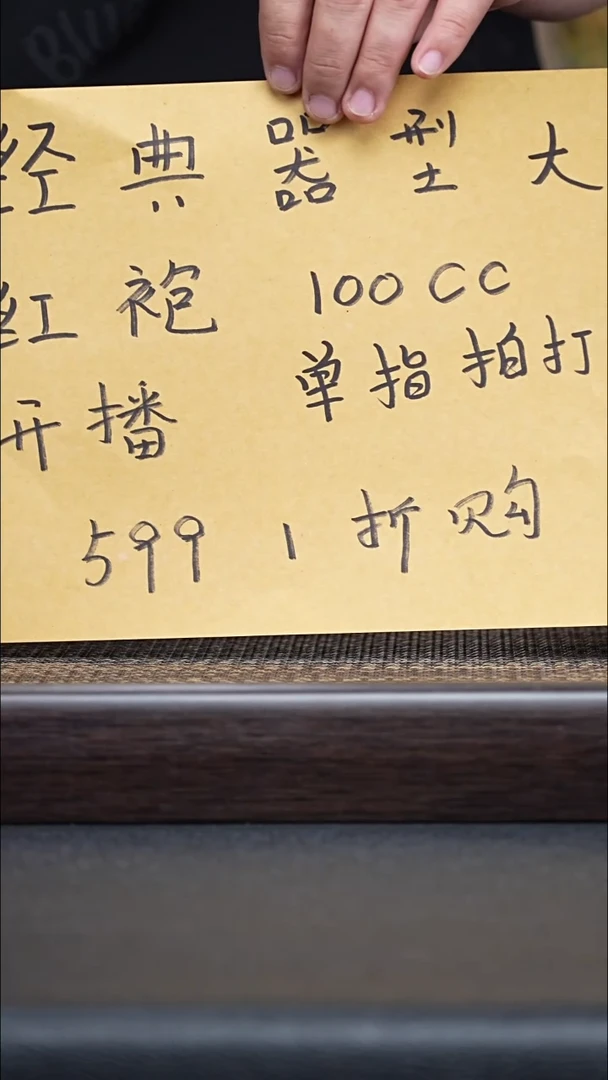 Blu
经典器型大
红袍 100CC
开播 单指拍打
599 1折购